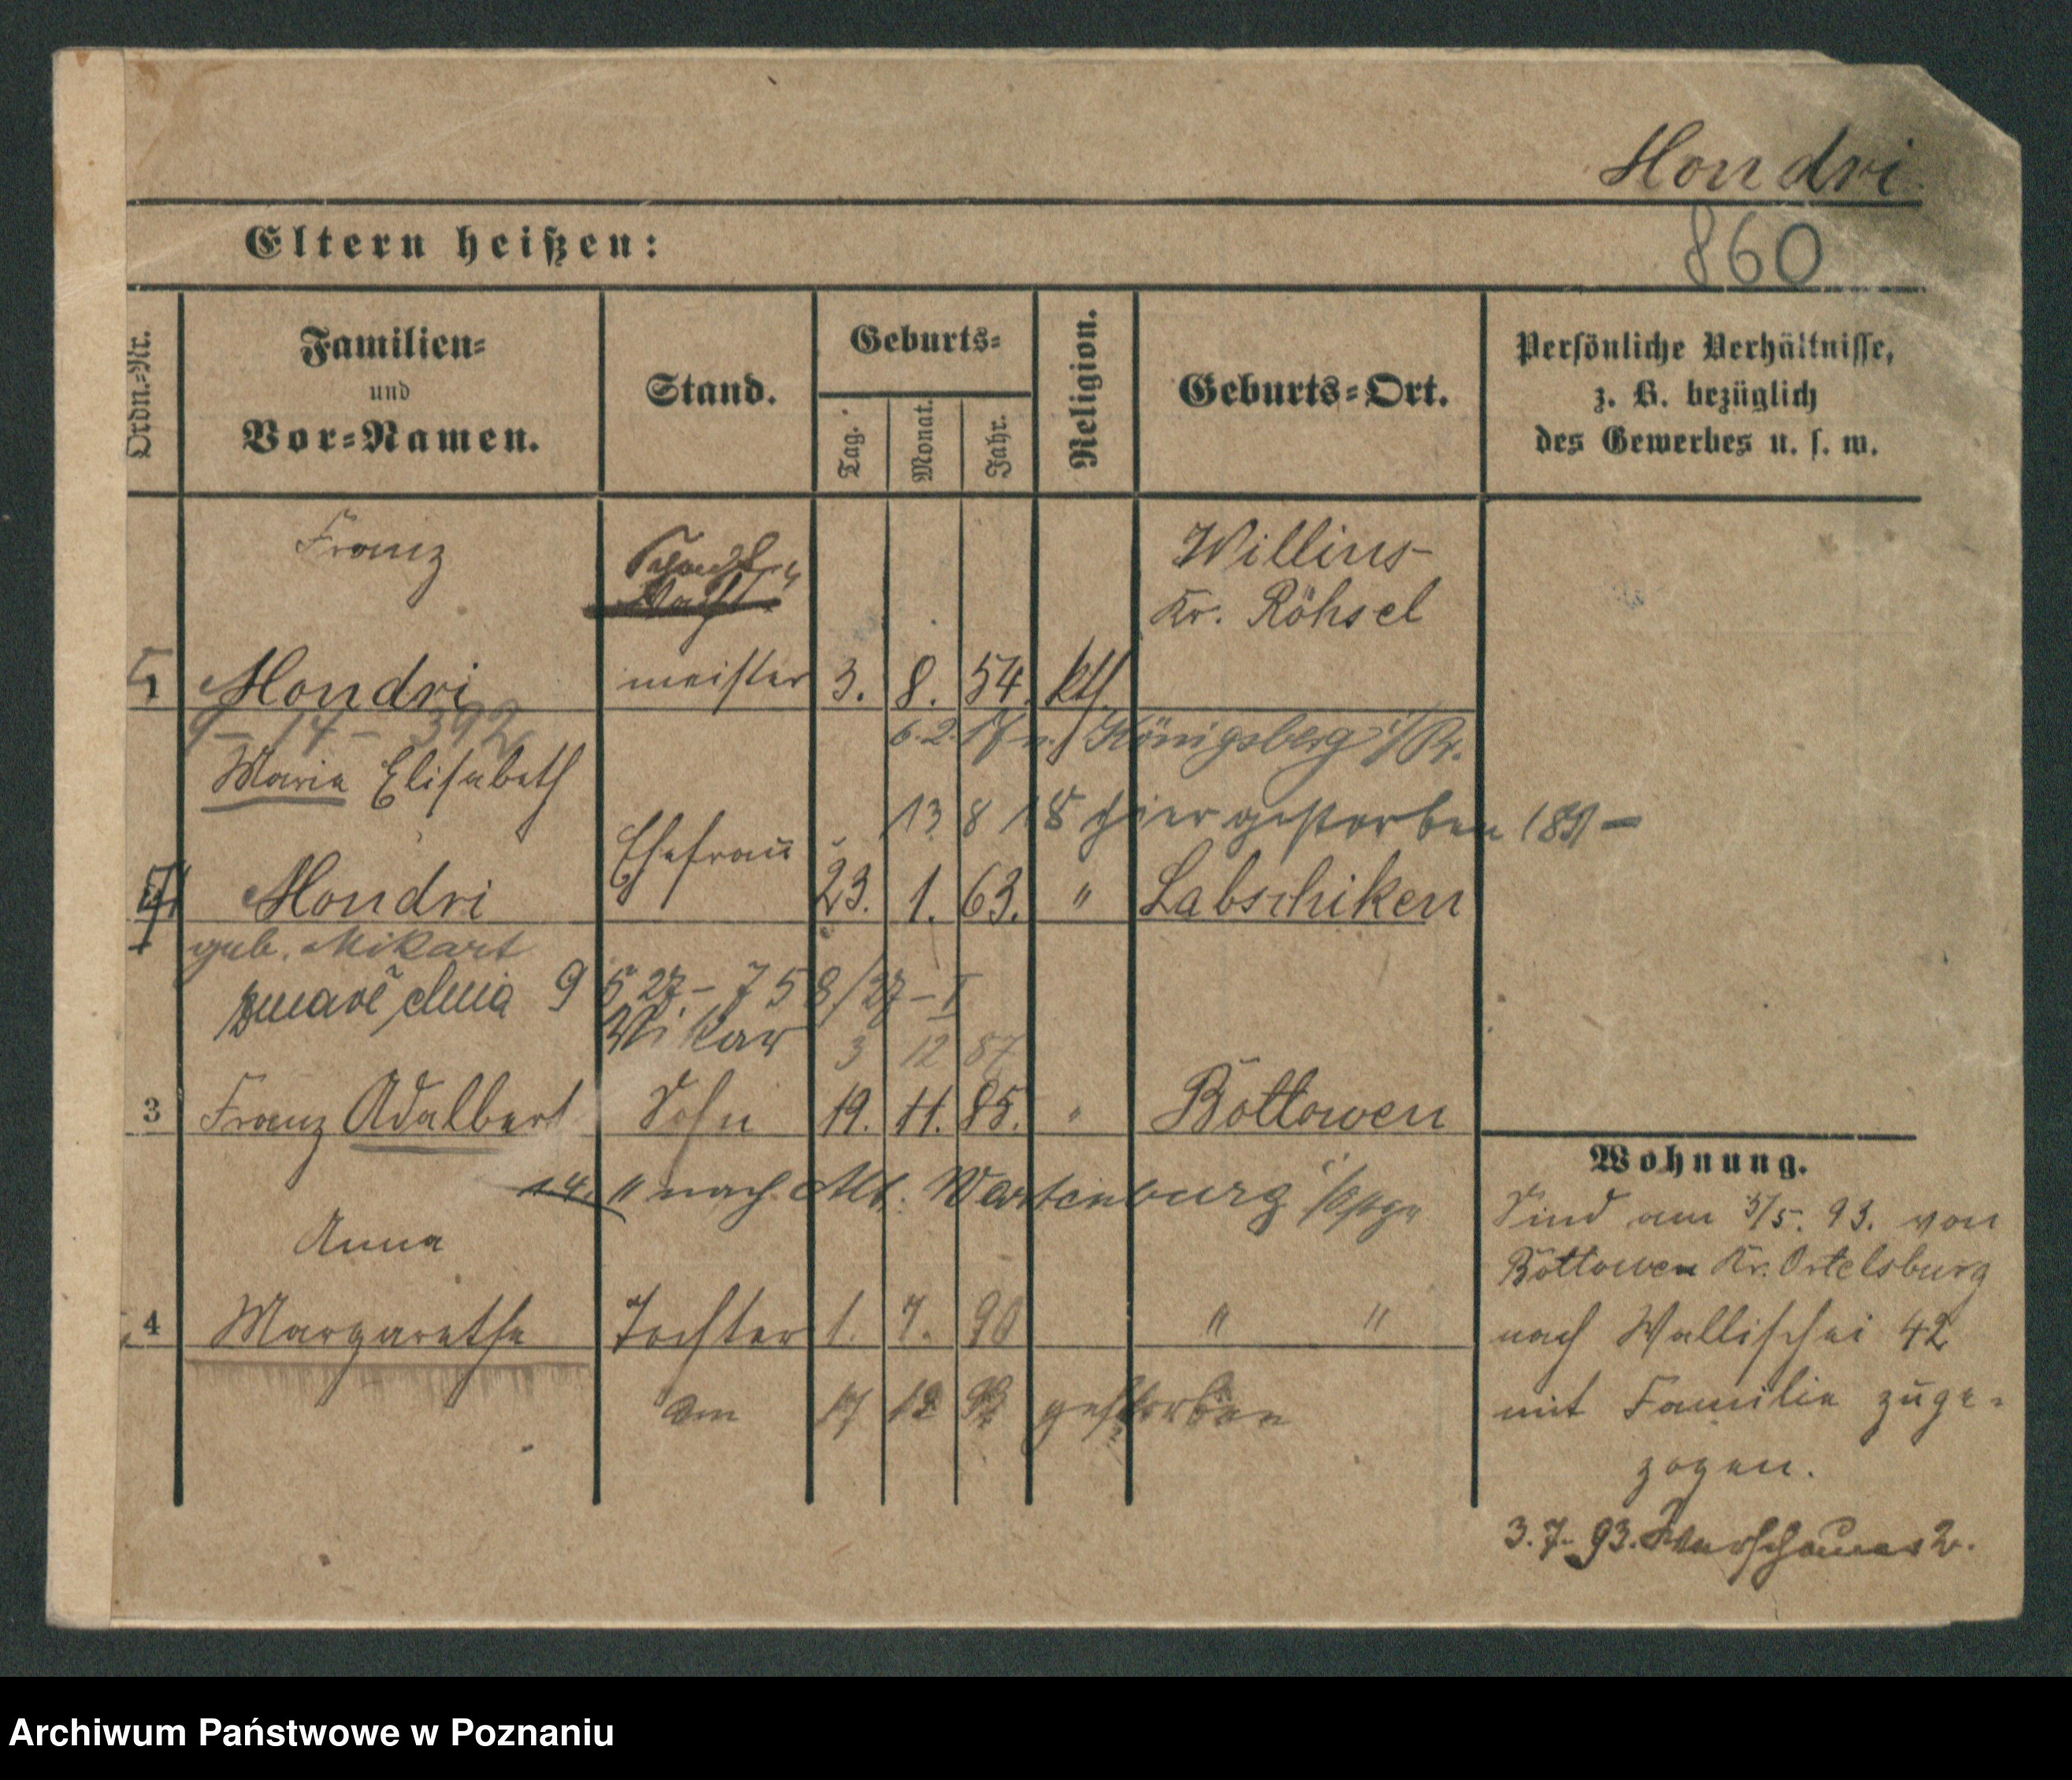 Mondri.
Eltern heißen:
860
Ordn.-Nr.
Familien-
und
Vor-Namen.
Stand.
Geburts-
Tag.
Monat.
Jahr.
Religion.
Geburts-Ort.
Persönliche Verhältnisse,
z. B. bezüglich
des Gewerbes u. s. w.
Franz
Willins-
Kr. Röhsel
Mondri meister 3. 8. 54. kth.
9 - 14 - 392
6. 2. 17 n. Königsberg i/Pr.
Maria Elisabeth
13 8 18 hier gestorben 189 -
Ehefrau
Mondri 23. 1. 63. " Labschiken
geb. Mikart
9 5 27 - 758/27 - I
3 12 87
3 Franz Adalbert Sohn 19. 11. 85. " Bottowen
14. 11 nach Alt. Wartenburg
Anna
4 Margarethe Tochter 1. 7. 90 " "
am 17 12 gestorben
Wohnung.
Sind am 3/5. 93. von
Bottowen Kr. Ortelsburg
nach Wallischei 42
mit Familie zuge-
zogen.
3. 7. 93. 2.
Archiwum Państwowe w Poznaniu